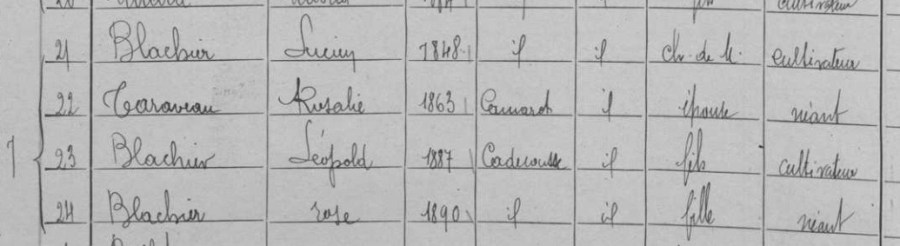 cultivateur
21 Blachier Lucien 1848 id id ch. de m. cultivateur
22 Taraveau Rosalie 1863 id épouse néant
7 23 Blachier Léopold 1887 Caderousse id fils cultivateur
24 Blachier rose 1890 id id fille néant